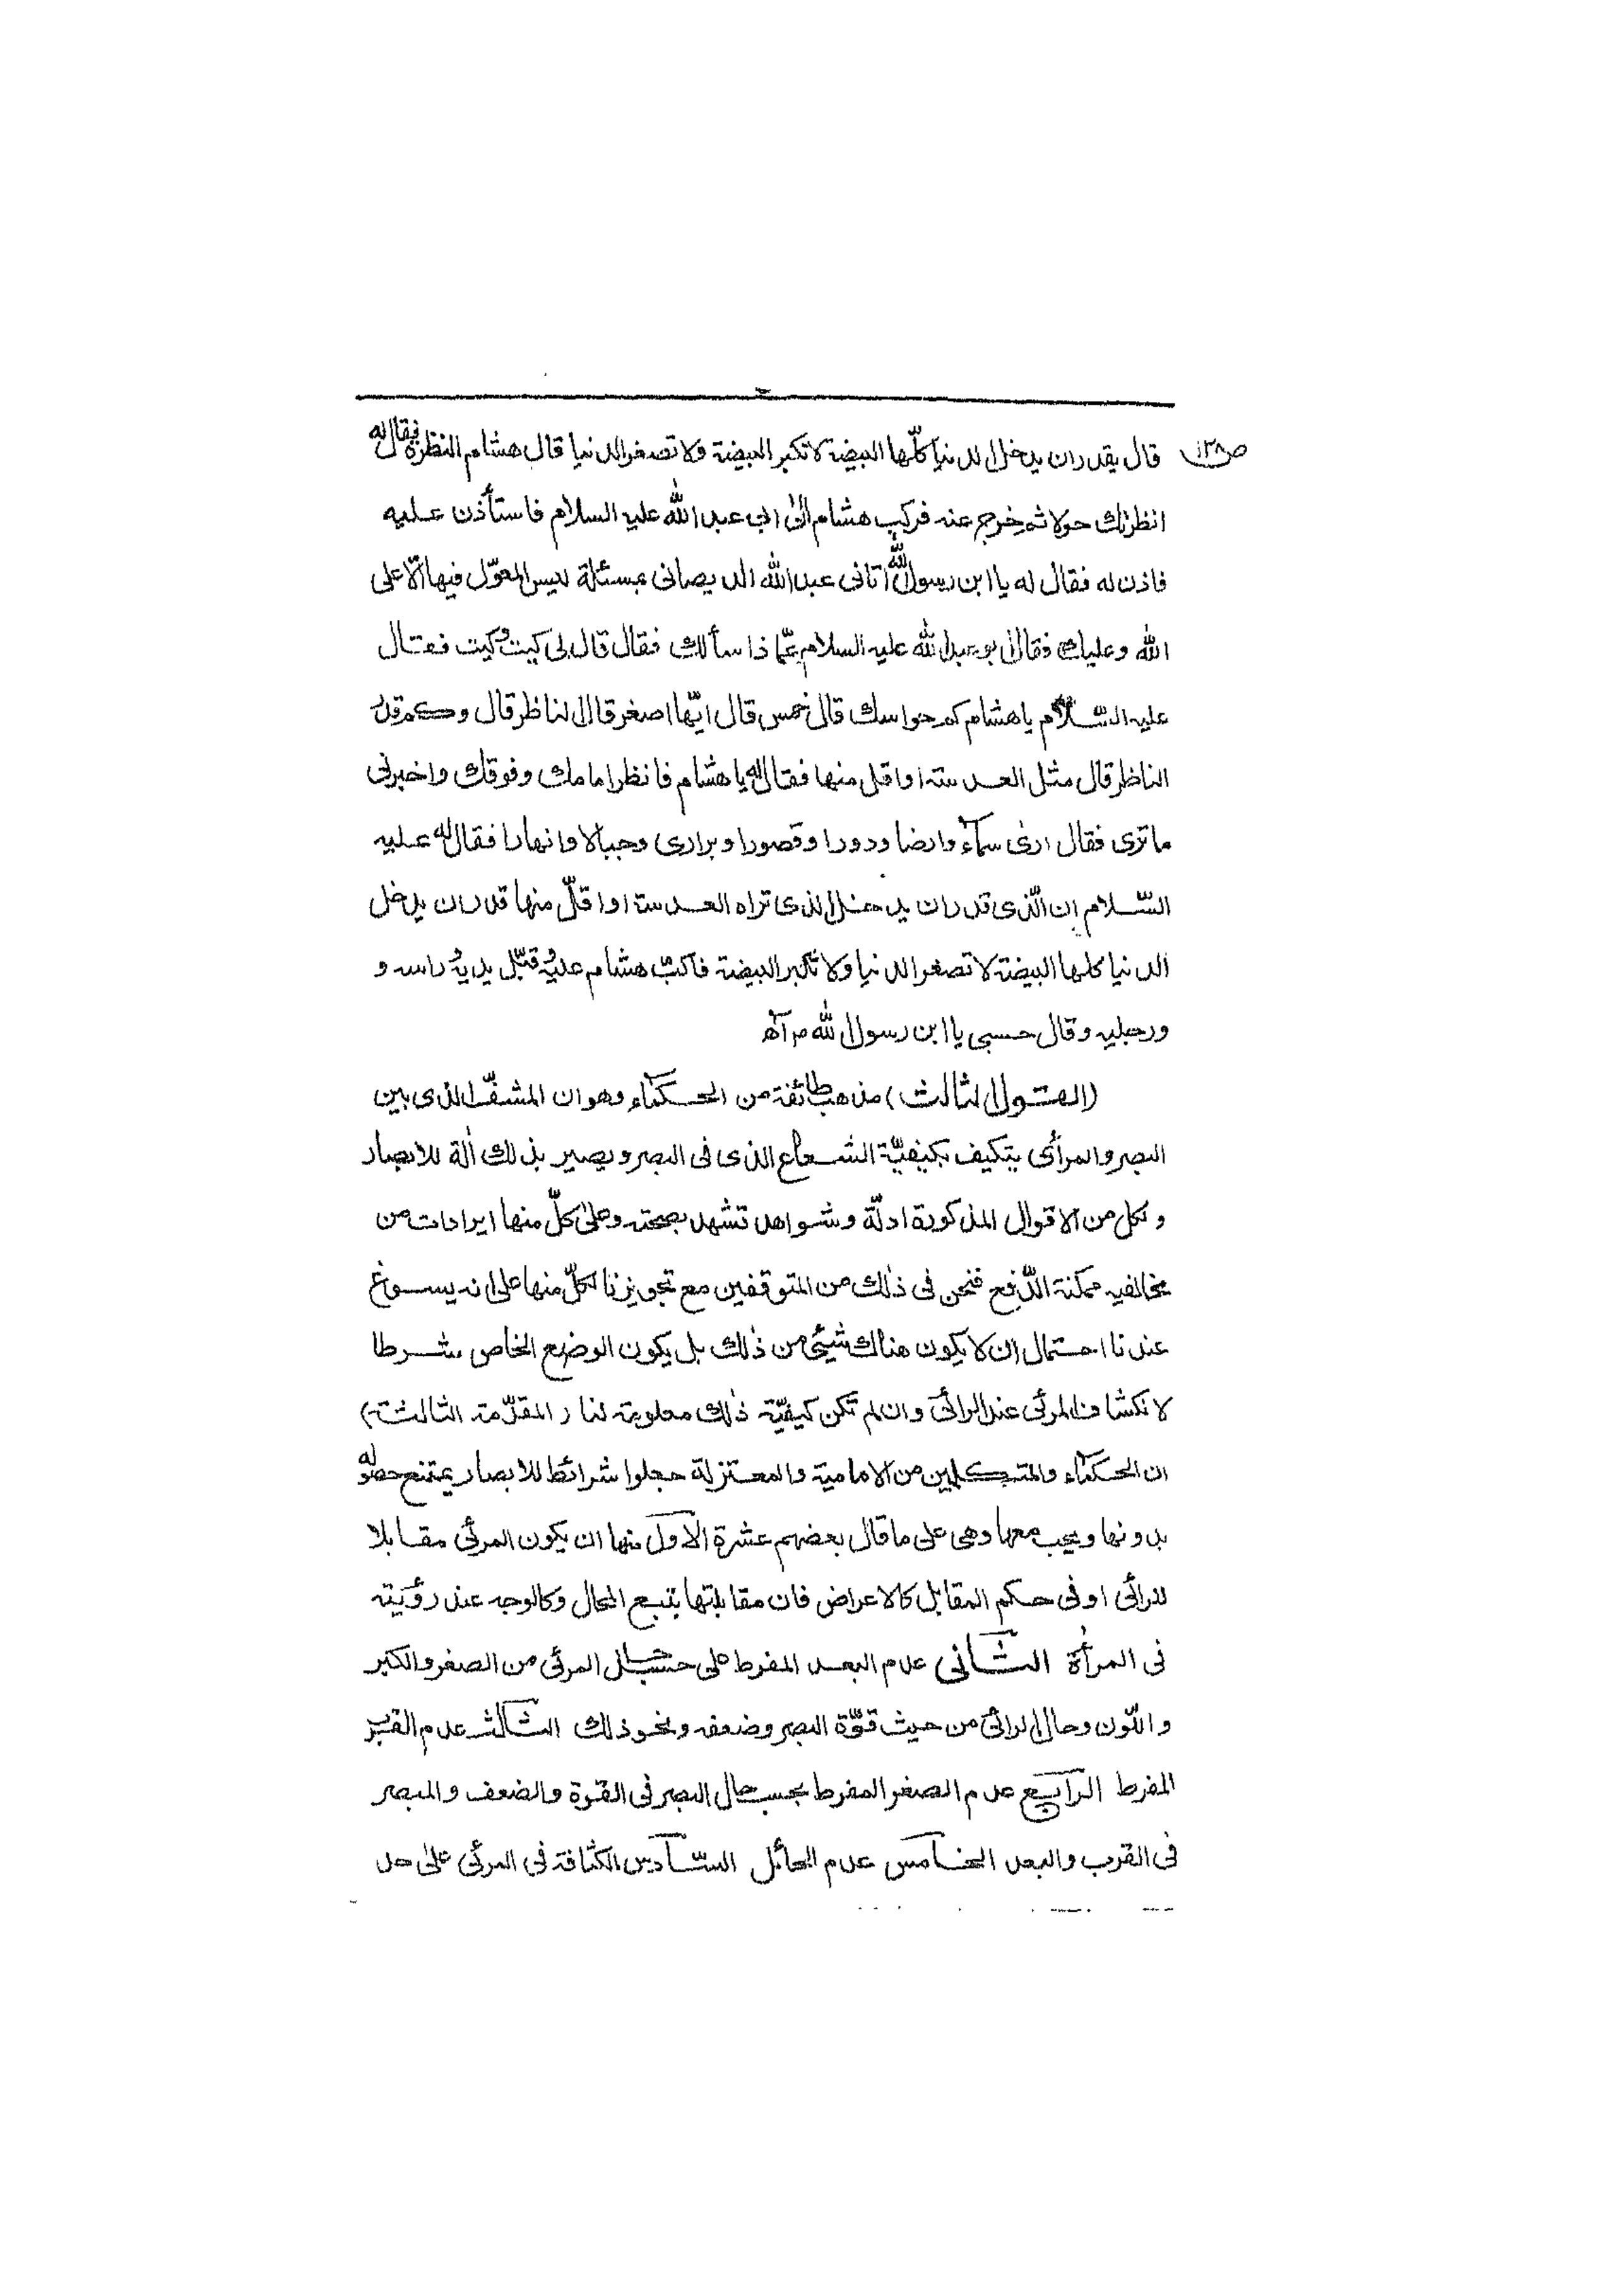 ص١٣٨
قال يقدر ان يدخل الدنيا كلّها البيضة لا تكبر البيضة ولا تصغر الدنيا قال هشام النظرة فقال له
انظرتك حولا ثم خرج عنه فركب هشام الى ابى عبد الله عليه السلام فاستأذن عليه
فاذن له فقال له يا ابن رسول الله أتانى عبد الله الديصانى بمسئلة ليس المعوّل فيها الّا على
الله وعليك فقال ابو عبد الله عليه السلام عمّا ذا سألك فقال قال لى كيت وكيت فقال
عليه السّلام يا هشام كم حواسك قال خمس قال ايّها اصغر قال الناظر قال وكم قدر
الناظر قال مثل العدسته او اقل منها فقال له يا هشام فانظر امامك وفوقك واخبرنى
ما ترى فقال ارى سماء وارضا ودورا وقصورا وبرارى وجبالا وانهارا فقال له عليه
السّلام ان الّذى قدر ان يدخل الذى تراه العدسته او اقلّ منها قدر ان يدخل
الدنيا كلها البيضة لا تصغر الدنيا ولا تكبر البيضة فاكبّ هشام عليه وقبّل يديه وراسه و
ورجليه وقال حسبى يا ابن رسول الله
(القول الثالث) مذهب طائفة من الحكماء وهو ان المشفّ الذى بين
البصر والمرأى يتكيف بكيفيّة الشعاع الذى فى البصر ويصير بذلك اٰلة للابصار
ولكل من الاقوال المذكورة ادلّة وشواهد تشهد بصحته وعلى كلّ منها ايرادات من
مخالفيه ممكنة الدّفع فنحن فى ذلك من المتوقفين مع تجويزنا لكلّ منها على انه يسوغ
عندنا احتمال ان لا يكون هناك شيئ من ذلك بل يكون الوضع الخاص شرطا
لانكشاف المرئى عند الرائى وان لم تكن كيفيّة ذلك معلومة لنا (المقدّمة الثالثة)
ان الحكماء والمتكلمين من الامامية والمعتزلة جعلوا شرائط للابصار يمتنع حصوله
بدونها ويجب معها وهى على ما قال بعضهم عشرة الاول منها ان يكون المرئى مقابلا
للرائى او فى حكم المقابل كالاعراض فان مقابلتها بتبع المحال وكالوجه عند رؤيته
فى المرأة الثانى عدم البعد المفرط على حسب حال المرئى من الصغر والكبر
واللّون وحال الرائى من حيث قوّة البصر وضعفه ونحو ذلك الثالث عدم القرب
المفرط الرابع عدم الصغر المفرط بحسب حال البصر فى القوة والضعف والمبصر
فى القرب والبعد الخامس عدم الحائل السّادس الكثافة فى المرئى على حد